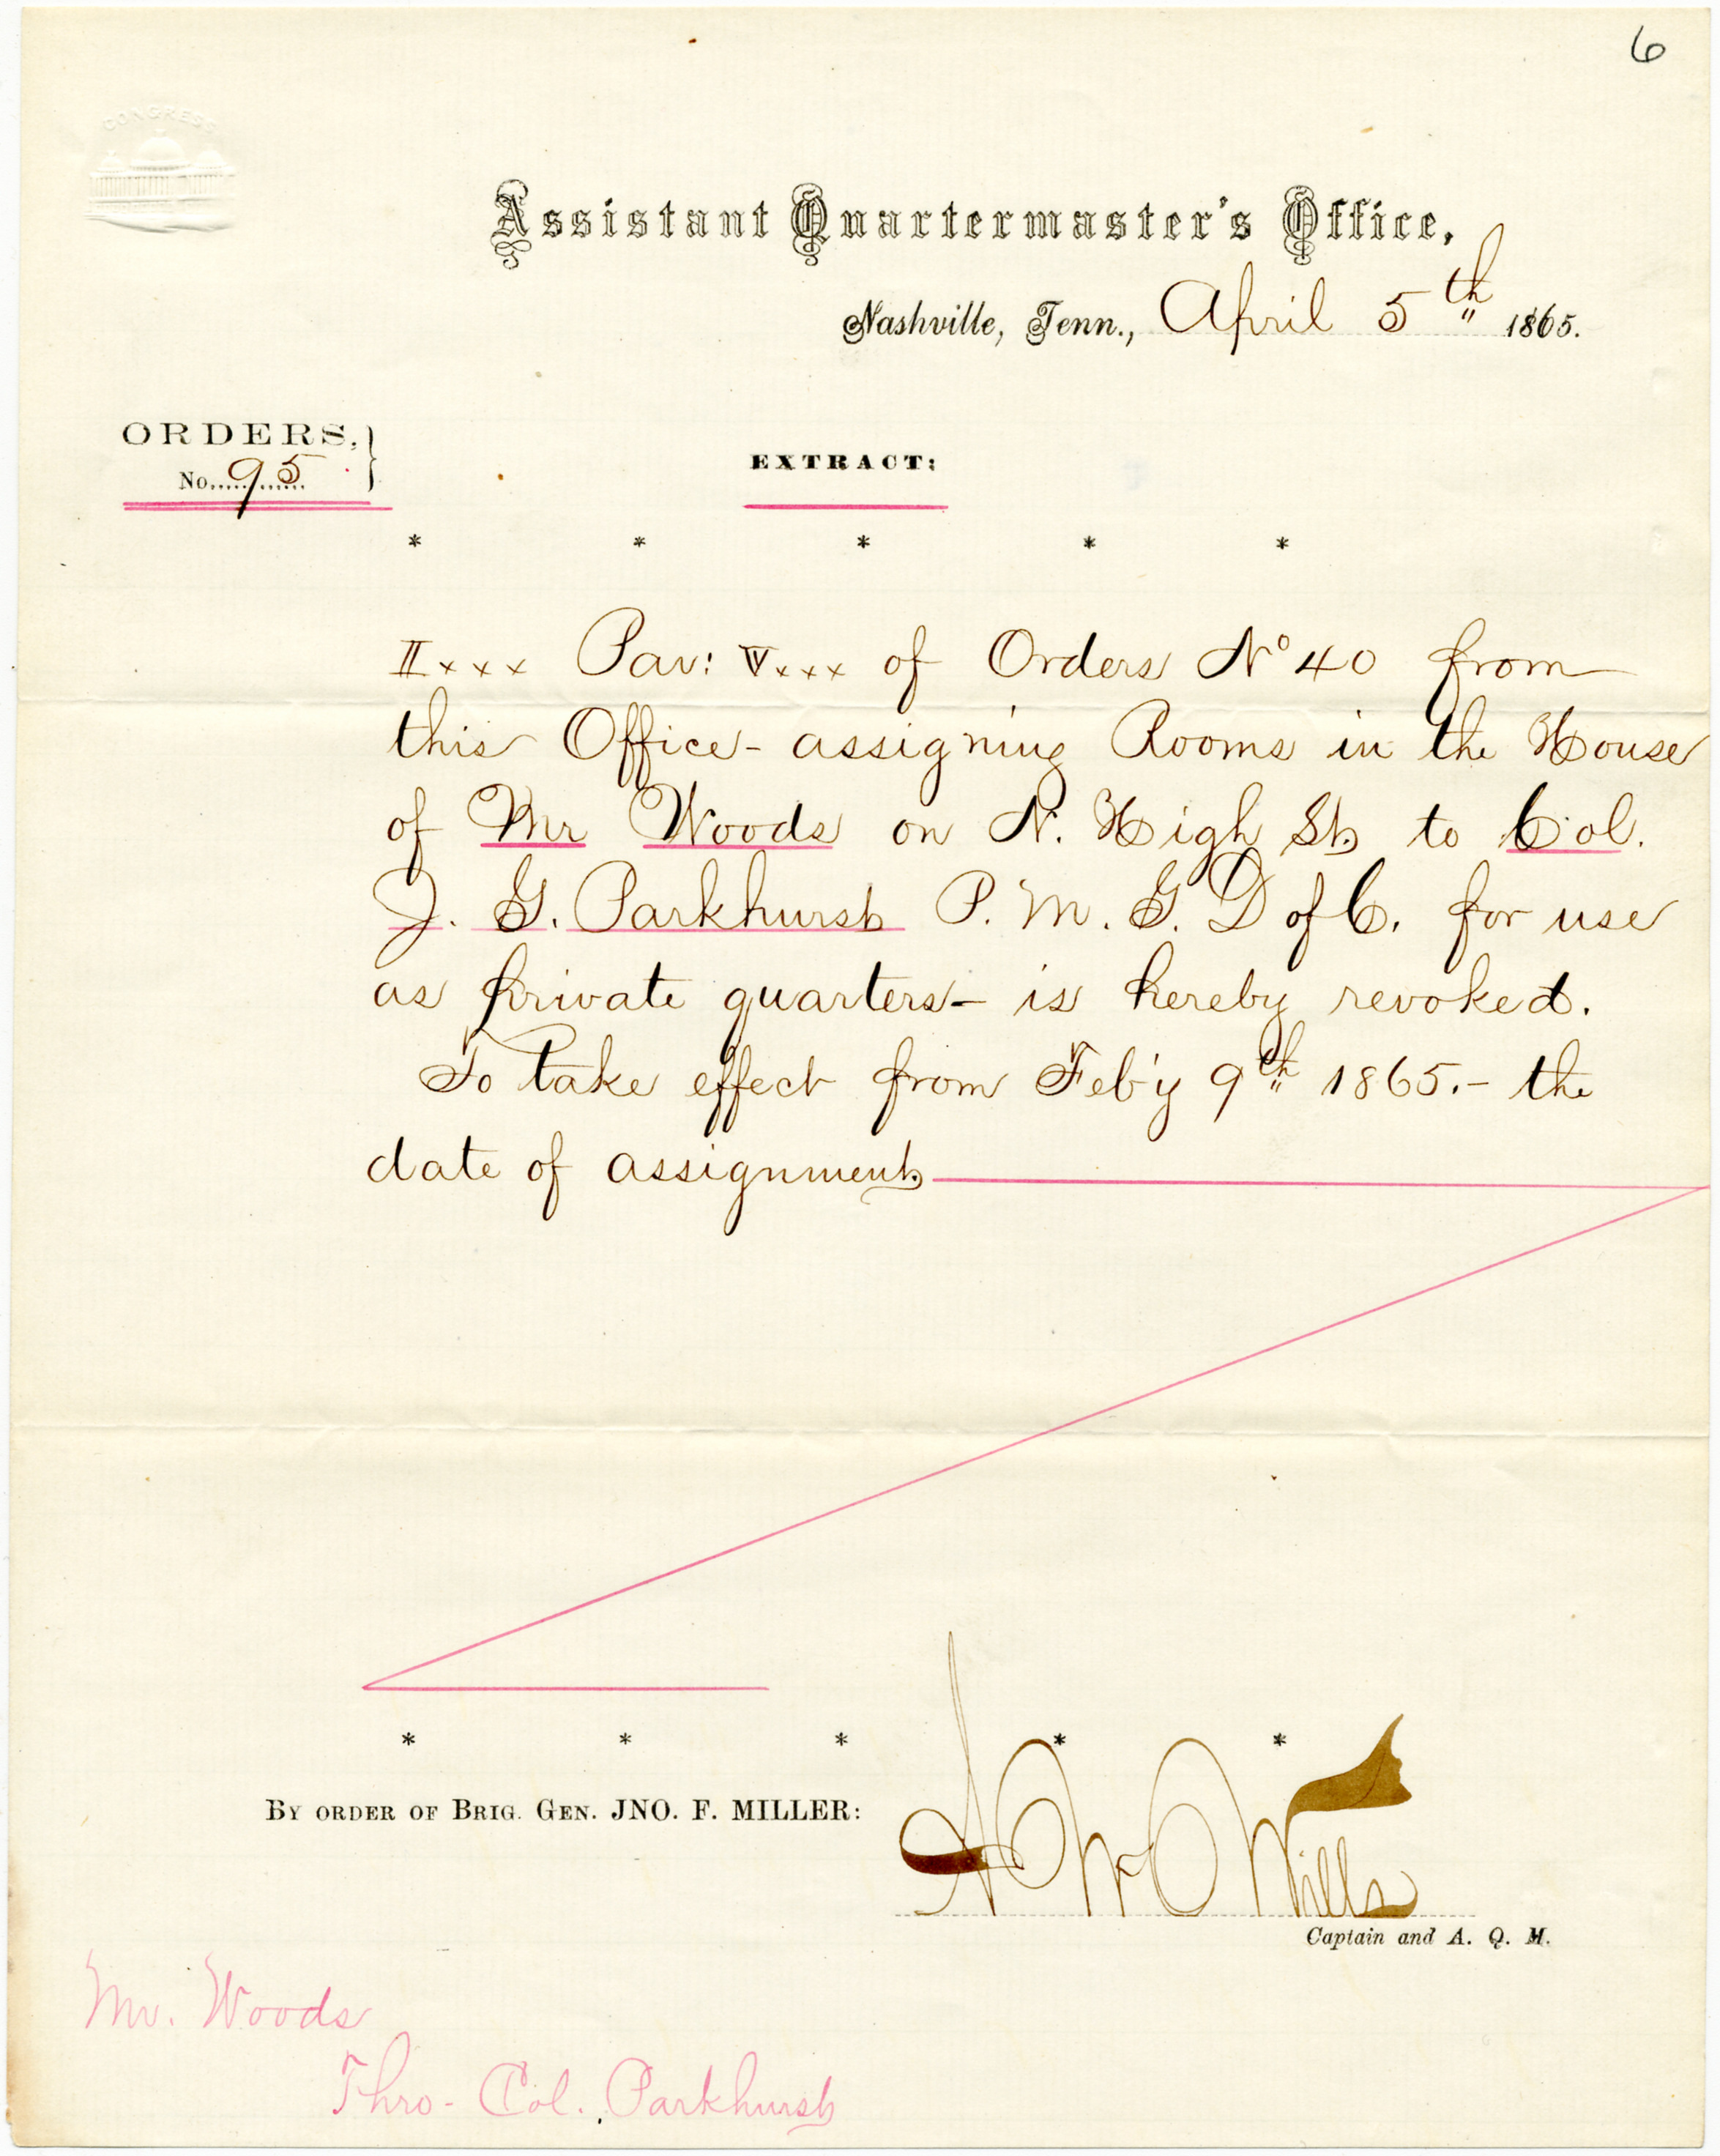 6
CONGRESS
Assistant Quartermaster's Office,
Nashville, Tenn., April 5th 1865.
ORDERS, }
No. 95
EXTRACT:
* * * * *
II xxx Par: V xxx of Orders No 40 from
this Office - assigning Rooms in the House
of Mr Woods on N. High St. to Col.
J. G. Parkhurst P. M. G. D of C. for use
as private quarters - is hereby revoked.
To take effect from Feb'y 9th 1865. - the
date of assignment.
* * * * *
BY ORDER OF BRIG. GEN. JNO. F. MILLER:
Wills
Captain and A. Q. M.
Mr. Woods
Thro - Col. Parkhurst